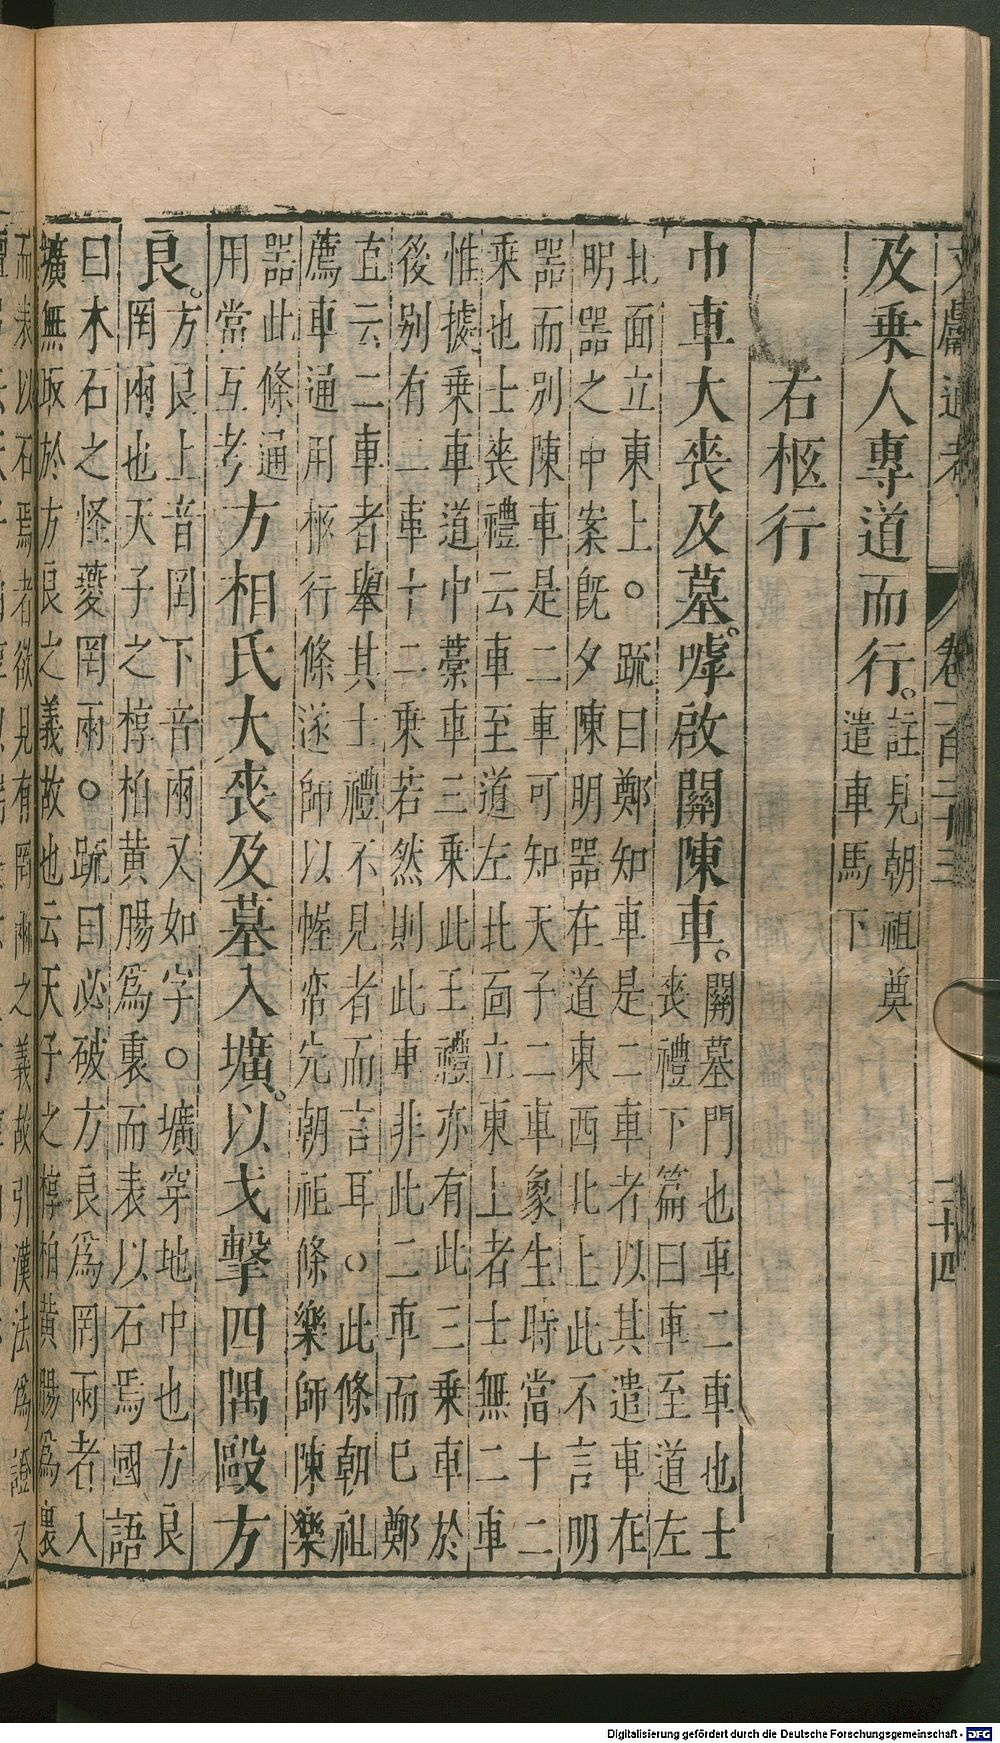 文獻通考 卷一百二十三 二十四
及乗人專道而行。註見朝祖奠
遣車馬下
右柩行
巾車大喪及墓。嘑啟關陳車。關墓門也車二車也士
喪禮下篇曰車至道左
北面立東上。○䟽曰鄭知車是二車者以其遣車在
明器之中案旣夕陳明器在道東西北上此不言明
器而别陳車是二車可知天子二車象生時當十二
乗也士喪禮云車至道左北面立東上者士無二車
惟據乗車道中藁車三乗此王禮亦有此三乗車於
後别有二車十二乗若然則此車非此二車而巳鄭
直云二車者舉其士禮不見者而言耳○此條朝祖
薦車通用柩行條遂師以幄帟先朝祖條樂師陳樂
器此條通
用當互考方相氏大喪及墓入壙。以戈擊四隅敺方
良。方良上音罔下音兩又如字○壙穿地中也方良
罔兩也天子之椁柏黄腸爲裏而表以石焉國語
曰木石之怪夔罔兩○䟽曰必破方良爲罔兩者入
壙無取於方良之義故也云天子之椁柏黄腸爲裏
而表以石焉者欲見有罔兩之義故引漢法爲證又
Digitalisierung gefördert durch die Deutsche Forschungsgemeinschaft - DFG